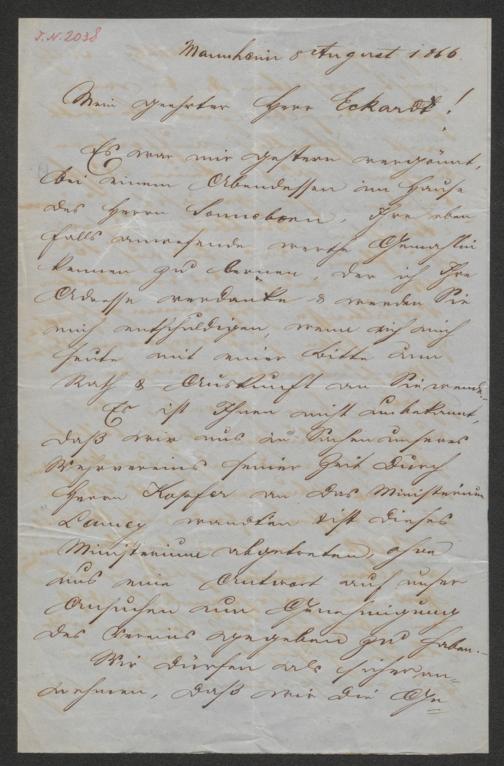 J.N. 2038
Mannheim 8 August 1866.
Mein geehrter Herr Eckardt!
Es war mir gestern vergönnt,
bei einem Abendessen im Hause
des Herrn Ihre eben
falls anwesende werthe Gemahlin
kennen zu lernen, der ich Ihre
Adresse verdanke & werden Sie
mich entschuldigen, wenn ich mich
heute mit einer Bitte um
Rath & Auskunft an Sie wende.
Es ist Ihnen nicht unbekannt,
daß wir uns in Sachen unseres
Wehrvereins seiner Zeit durch
Herrn Kopfer an das Ministerium
Lamey wandten & ist dieses
Ministerium abgetreten, ohne
uns eine Antwort auf unser
Ansuchen um Genehmigung
des Vereins gegeben zu haben.
Wir dürfen als sicher an-
nehmen, daß wir die Ge=